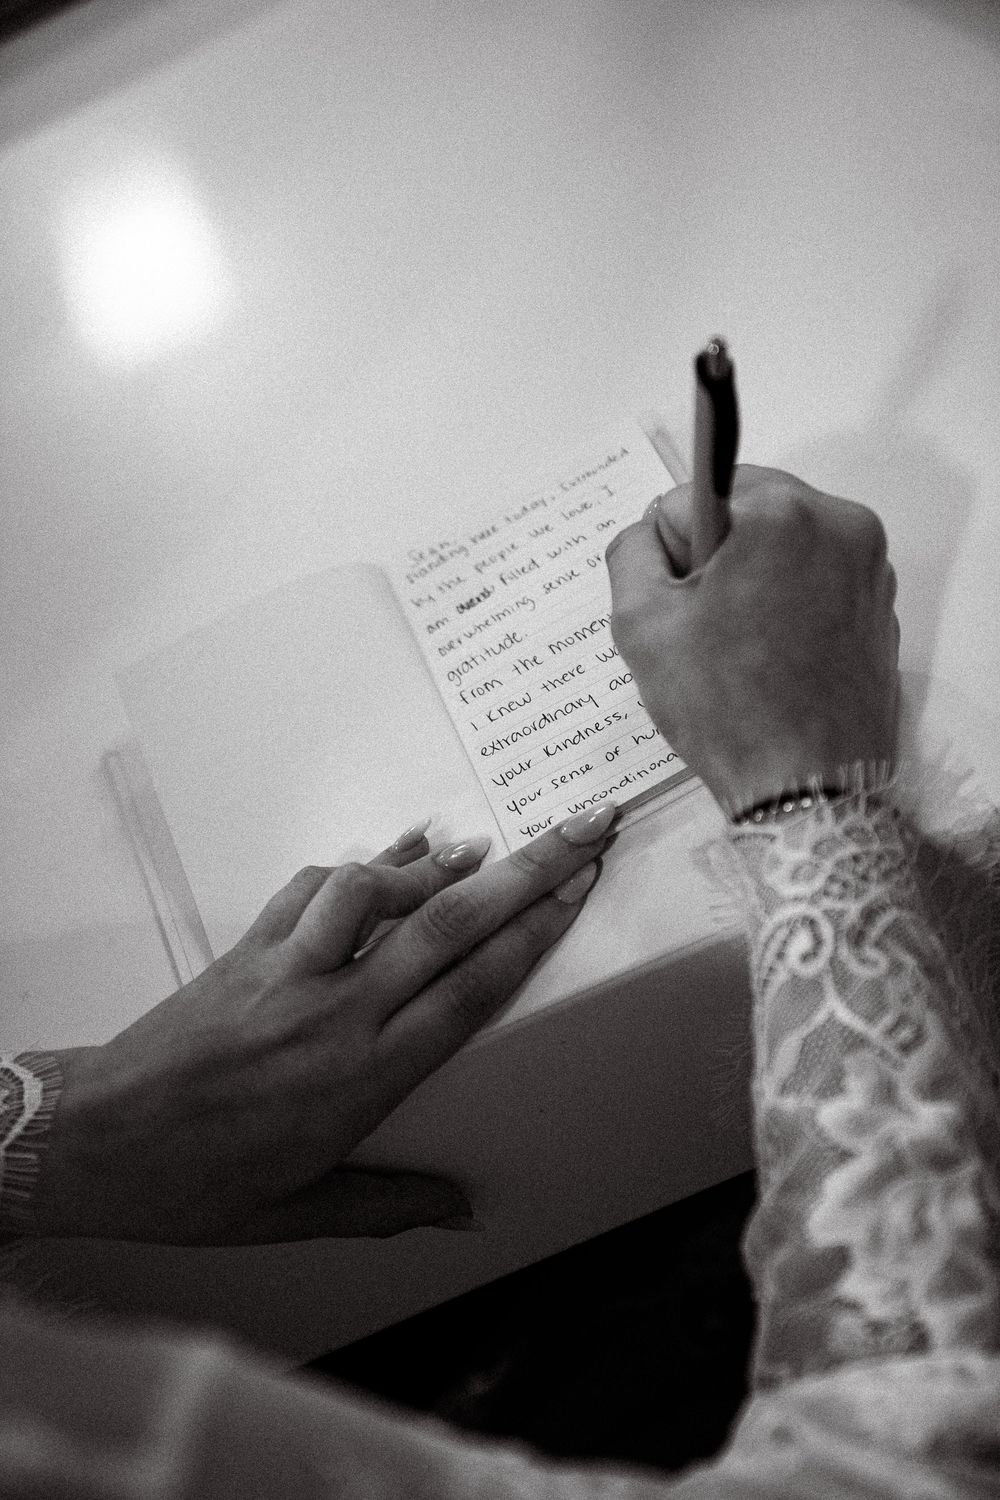 Sean,
standing here today, surrounded
by the people we love, I
am filled with an
overwhelming sense of
gratitude.
from the moment
I knew there
extraordinary
your kindness,
your sense of
your unconditiona